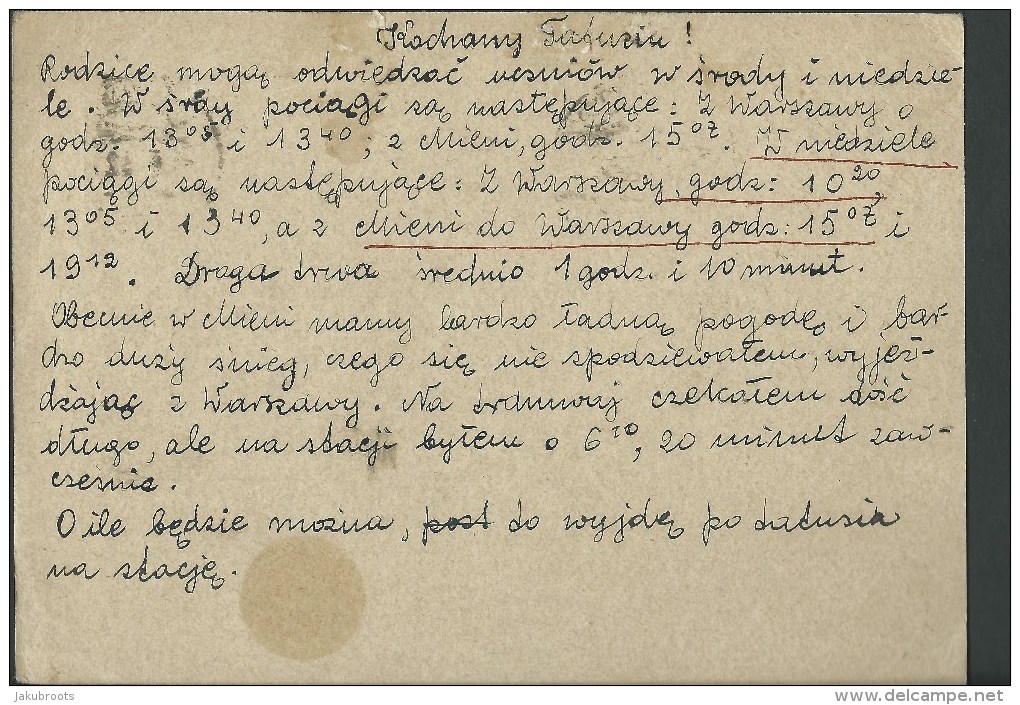 Kochany Tatusiu!
Rodzice mogą odwiedzać uczniów w środy i niedzie-
le. W śrdy pociągi są następujące: Z Warszawy o
godz. 13⁰⁵ i 13⁴⁰; z Mieni, godz. 15⁰⁷. W niedziele
pociągi są następujące: Z Warszawy, godz: 10²⁰,
13⁰⁵ i 13⁴⁰, a z Mieni do Warszawy godz: 15⁰⁷ i
19¹². Droga trwa średnio 1 godz. i 10 minut.
Obecnie w Mieni mamy bardzo ładną pogodę i bar-
dzo duży śnieg, czego się nie spodziewałem, wyjeż-
dżając z Warszawy. Na trdmwaj czekałem dość
długo, ale na stacji byłem o 6¹⁰, 20 minut zaw-
cześnie.
O ile będzie można, post to wyjdę po tatusia
na stację.
jakubroots
www.delcampe.net